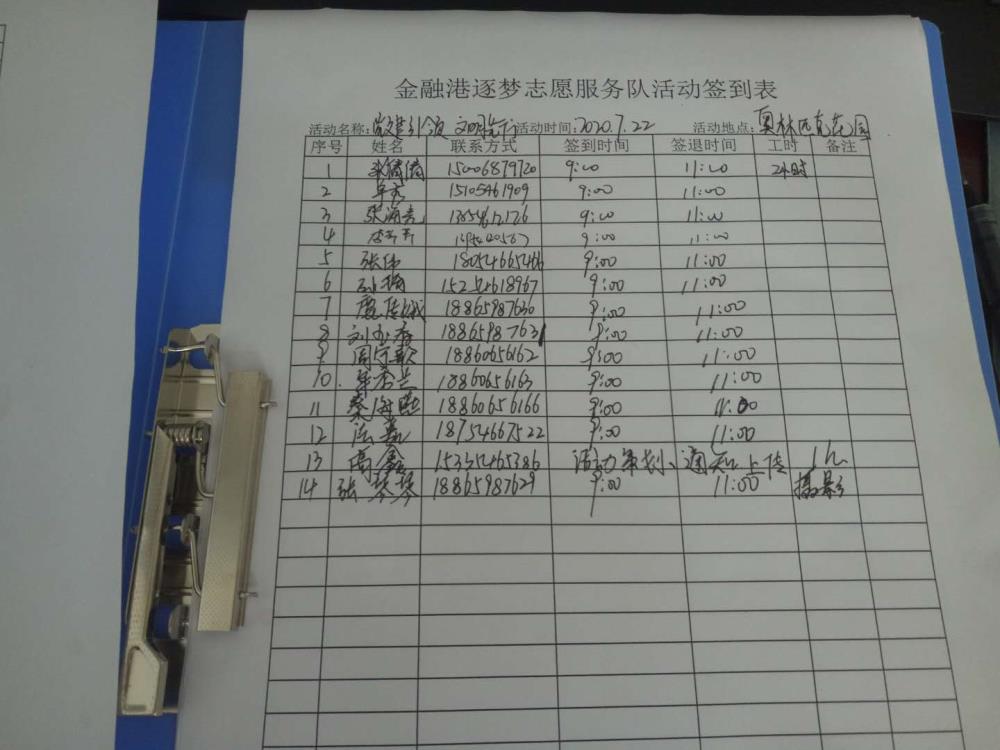 金融港逐梦志愿服务队活动签到表
活动名称:党建引领 文明 活动时间:2020.7.22 活动地点:奥林匹克花园
序号 姓名 联系方式 签到时间 签退时间 工时 备注
1 15006879720 9:00 11:00 2小时
2 15105461909 9:00 11:00
3 张海亮 9:00 11:00
4 9:00 11:00
5 张伟 18054665466 9:00 11:00
6 孙梅 15254618967 9:00 11:00
7 18865987630 9:00 11:00
8 刘 18865987631 9:00 11:00
9 周 18860656162 9:00 11:00
10. 18860656163 9:00 11:00
11 秦海 18860656166 9:00 11:00
12 18754667522 9:00 11:00
13 高鑫 活动策划、通知上传 1h
14 张琴琴 18865987629 9:00 11:00 摄影